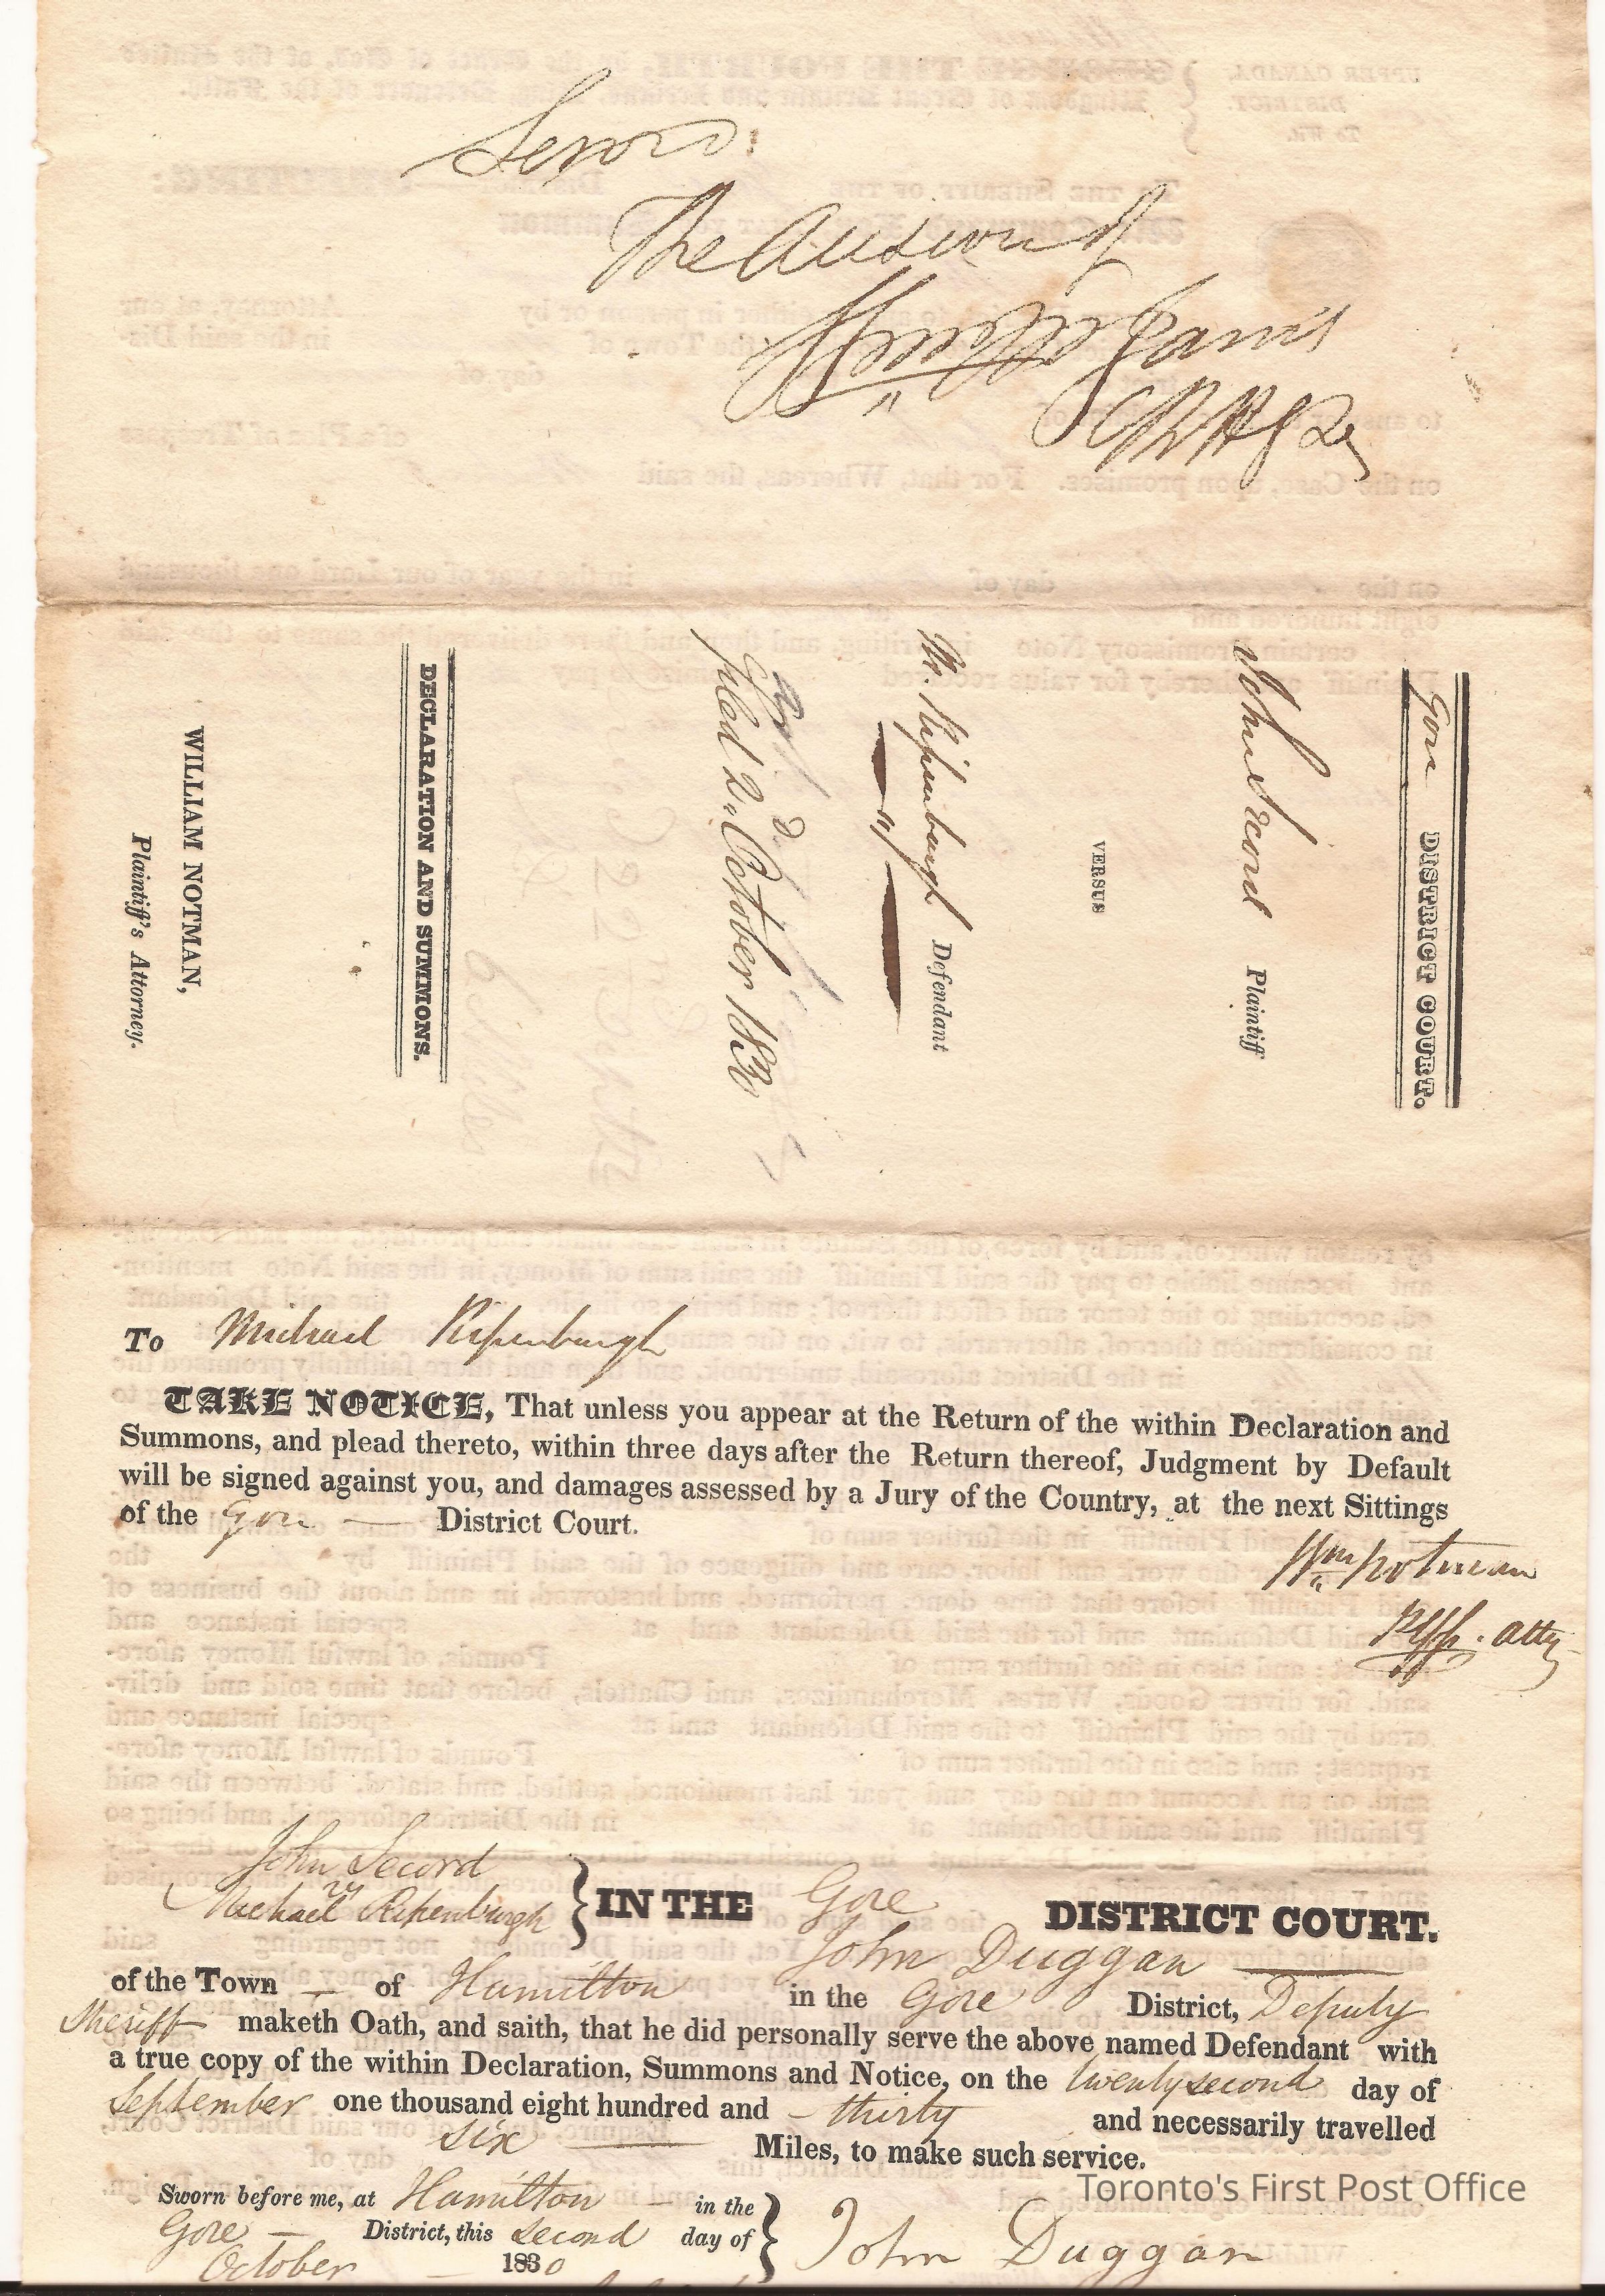 The Answer of
Jarvis
Gore DISTRICT COURT.
John Secord Plaintiff
VERSUS
M. Ripenburgh Defendant
filed 2,, October 1830
DECLARATION AND SUMMONS.
WILLIAM NOTMAN,
Plaintiff's Attorney.
To Michael Ripenburgh
TAKE NOTICE, That unless you appear at the Return of the within Declaration and
Summons, and plead thereto, within three days after the Return thereof, Judgment by Default
will be signed against you, and damages assessed by a Jury of the Country, at the next Sittings
of the Gore — District Court.
Wm Notman
Plffs. Atty
John Secord
vs
Michael Ripenburgh } IN THE Gore DISTRICT COURT.
John Duggan
of the Town — of Hamilton in the Gore District, Deputy
Sheriff maketh Oath, and saith, that he did personally serve the above named Defendant with
a true copy of the within Declaration, Summons and Notice, on the twenty second day of
September one thousand eight hundred and – thirty and necessarily travelled
six — Miles, to make such service.
Toronto's First Post Office
Sworn before me, at Hamilton – in the
Gore — District, this second day of }
October — 1830
John Duggan